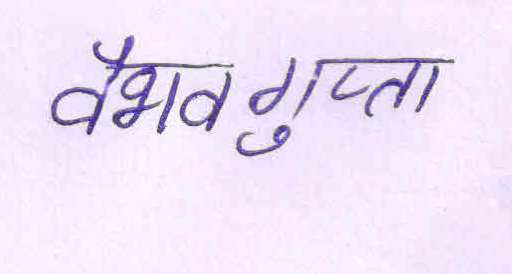 वैभव गुप्ता